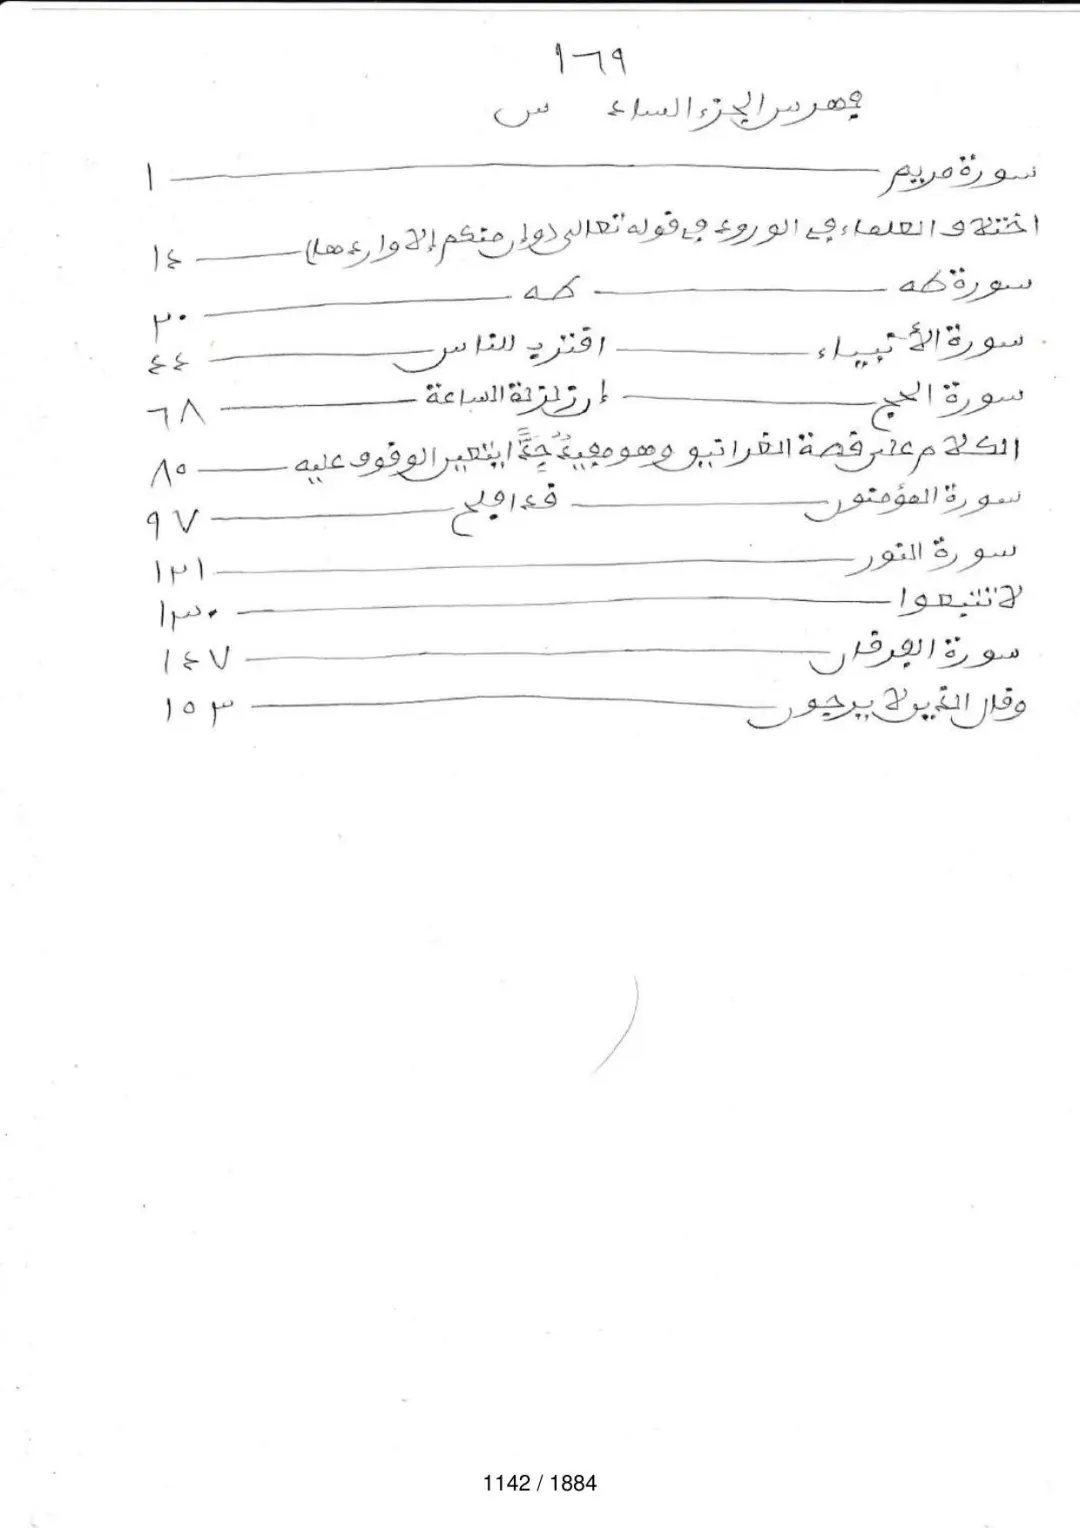 ١٦٩
فهرس الجزء السادس
سورة مريم ١
اختلاف العلماء في الورود في قوله تعالى (وإن منكم إلا واردها) ١٤
سورة طه طه ٢٠
سورة الأنبياء اقترب للناس ٤٤
سورة الحج إن زلزلة الساعة ٦٨
الكلام على قصة الغرانيق وهو مفيد جدًّا يتعين الوقوف عليه ٨٥
سورة المؤمنون قد افلح ٩٧
سورة النور ١٢١
لا تتبعوا ١٣٠
سورة الفرقان ١٤٧
وقال الذين لا يرجون ١٥٣
1142 / 1884